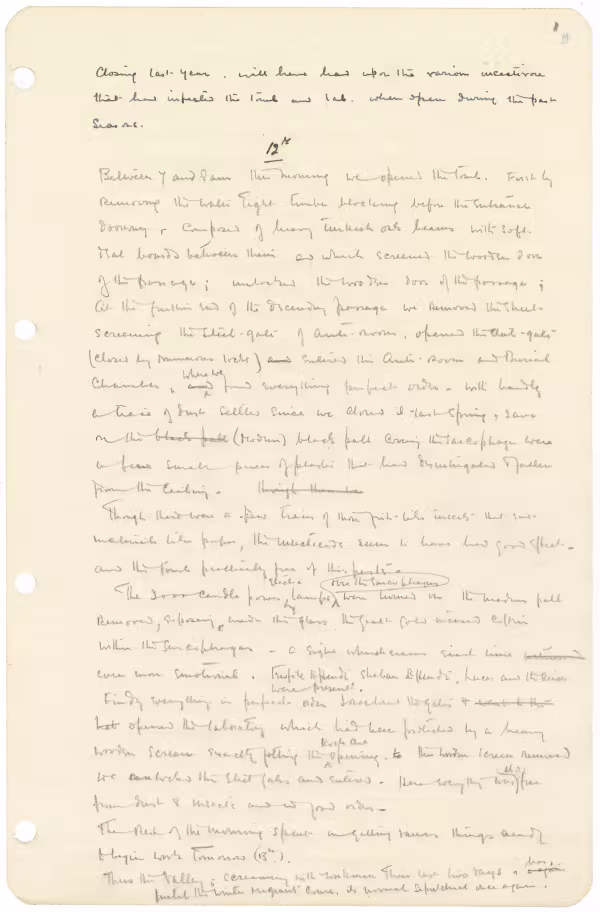 closing last year. will have had upon the various insectivora
that had infected the tomb and lab. when open during the past
seasons.
12th
Between 7 and 8am this morning we opened the tomb. Firstly
removing the water tight timber blocking before the entrance
doorway, composed of heavy Turkish oak beams with soft
deal boards between them and which screened the wooden door
of the passage; unlocked the wooden door of the passage;
at the further end of the descending passage we removed the sheet
screening the steel-gate of Ante-room, opened the steel-gate
(closed by numerous locks) and entered the Ante-Room and Burial
Chamber, and where we found everything perfect order - with hardly
a trace of dust settled since we closed it last Spring, save
on the black pall (modern) black pall covering the sarcophagus were
a few small pieces of plaster that had disintegrated & fallen
from the ceiling.
Though there were a few traces of those fish-like insects that
materials like paper, the insecticide seems to have had good effect -
and the tomb practically free of this pest -
The 2000 candle power Electric lamps over the sarcophagus were turned on the modern pall
removed, exposing, under the glass, the great gold incased coffin
within the sarcophagus - a sight which seems each time
even more emotional. Tewfik Effendi, Shaban Effendi, and the Reises
were present.
Finding everything in perfect order I reclosed the gates & went to the
opened the laboratory which had been protected by a heavy
wooden screen exactly fitting the rock and opening. the wooden screen removed
we unlocked the steel gates and entered. Here everything was also free
from dust & insects and in good order -
The rest of the morning spent in getting various things ready
to begin work tomorrow (13th).
Thus the Valley, screaming with workmen these last two days, has,
until the winter migrants come, its normal sepulchral once again.